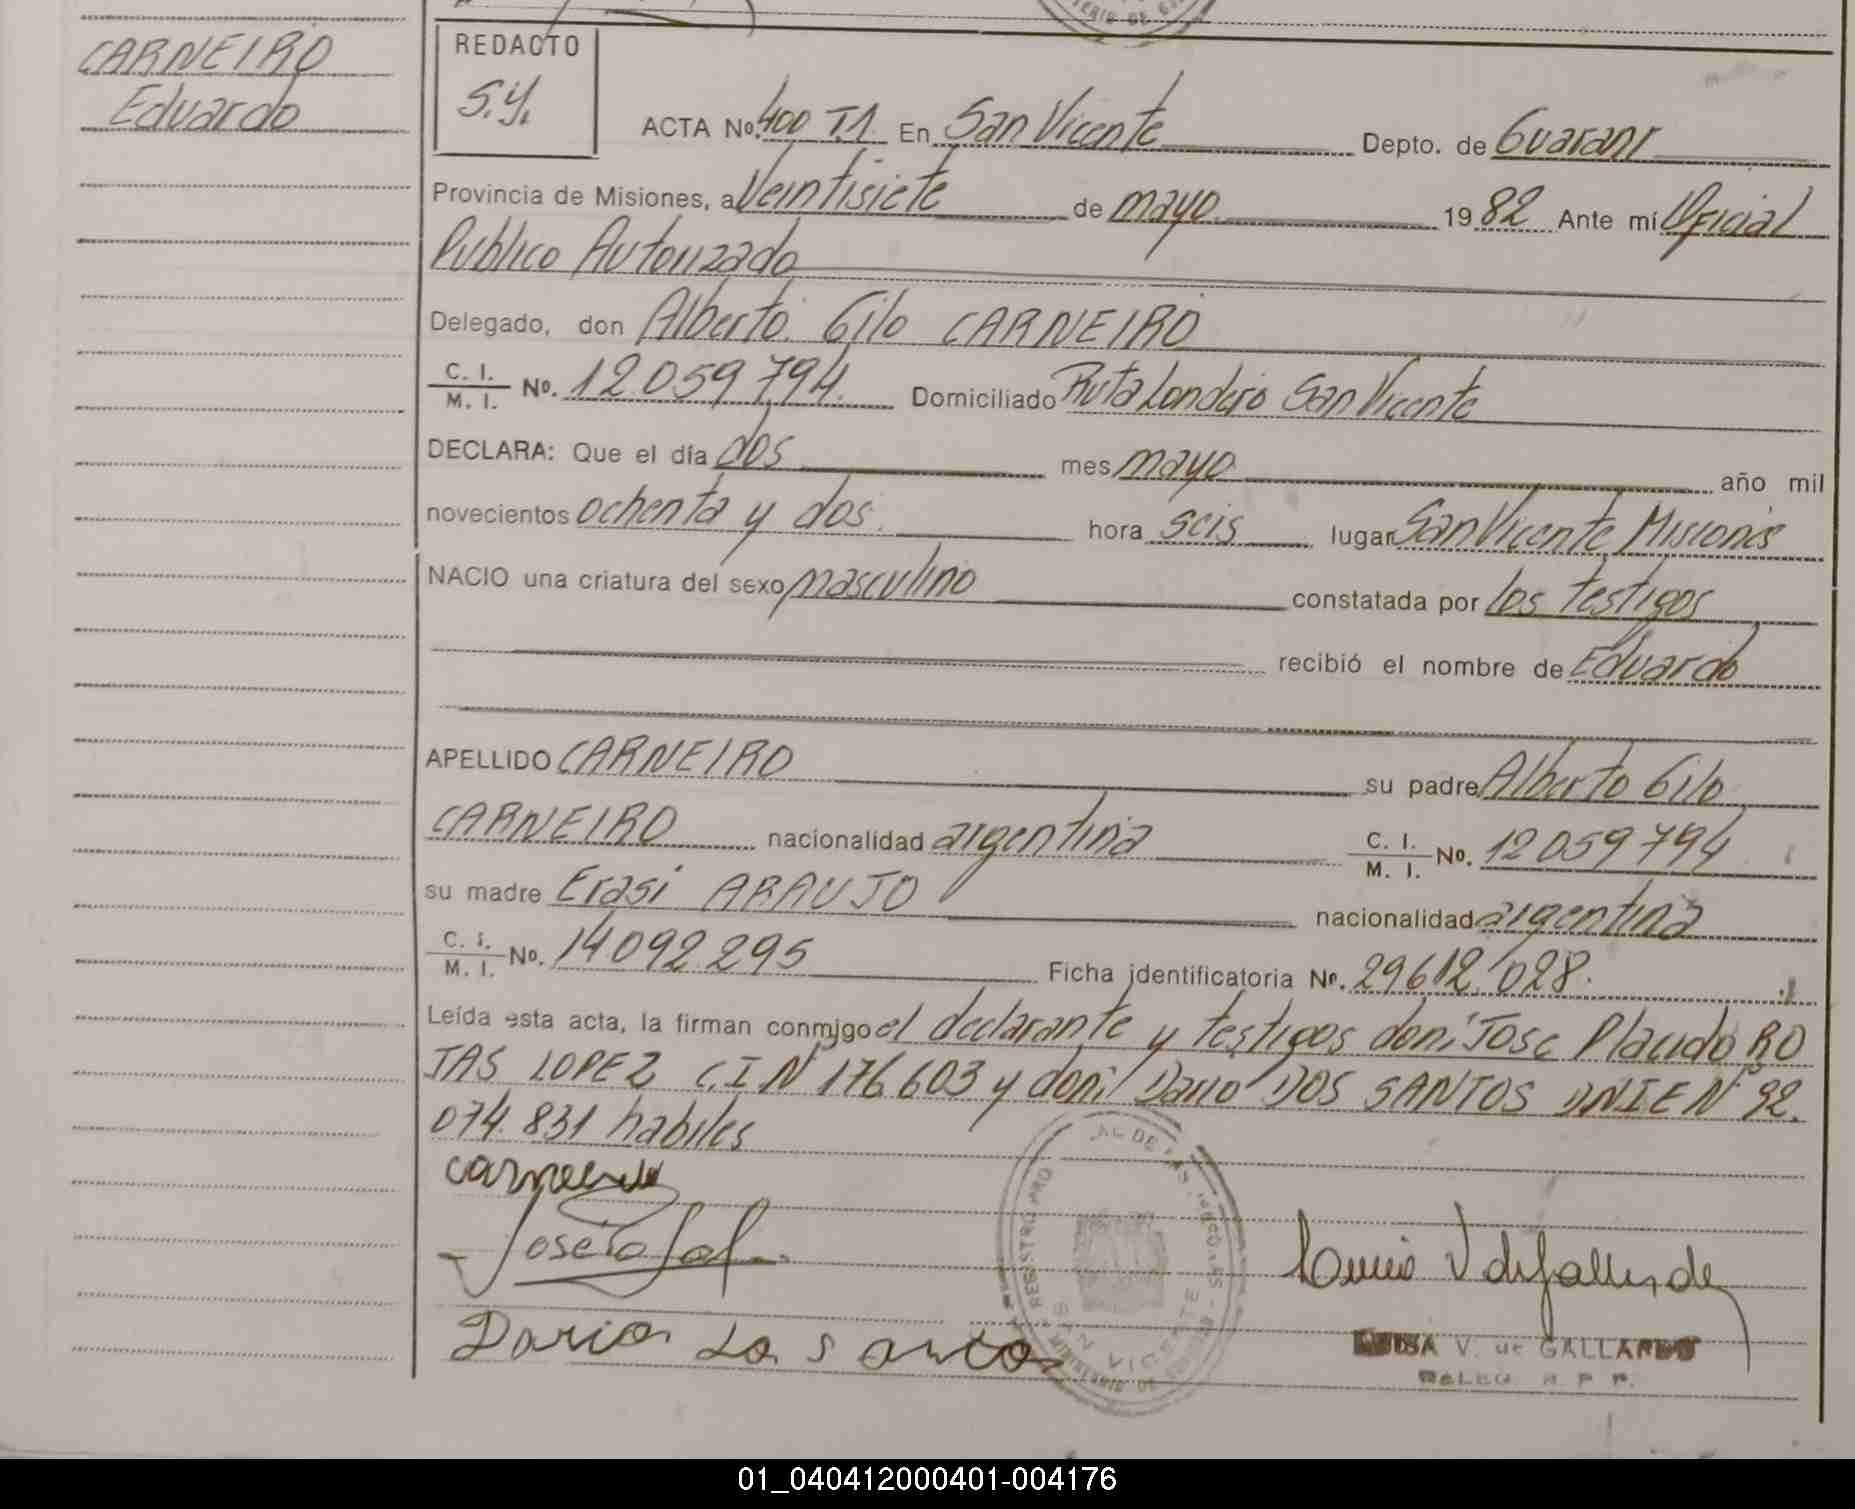 CARNEIRO
Eduardo
REDACTO
S.Y.
ACTA No. 400 T1. En San Vicente Depto. de Guaraní
Provincia de Misiones, a Veintisiete de mayo 1982 Ante mí Oficial
Publico Autorizado
Delegado, don Alberto Gilo CARNEIRO
C. I. / M. I. No. 12.059.794. Domiciliado Ruta Londero San Vicente
DECLARA: Que el día dos mes mayo año mil
novecientos ochenta y dos. hora seis lugar San Vicente Misiones
NACIO una criatura del sexo masculino constatada por los testigos
recibió el nombre de Eduardo
APELLIDO CARNEIRO su padre Alberto Gilo
CARNEIRO nacionalidad argentina C. I. / M. I. No. 12059794
su madre Erasi ARAUJO nacionalidad argentina
C. I. / M. I. No. 14092295 Ficha identificatoria No. 29612.028.
Leída esta acta, la firman conmigo el declarante y testigos doni Jose Placido RO
JAS LOPEZ C.I Nº 176.603 y doni Dario DOS SANTOS DNIE Nº 92.
074.831 habiles
Dario
SAN VICENTE
V. de GALLARDO
01_040412000401-004176